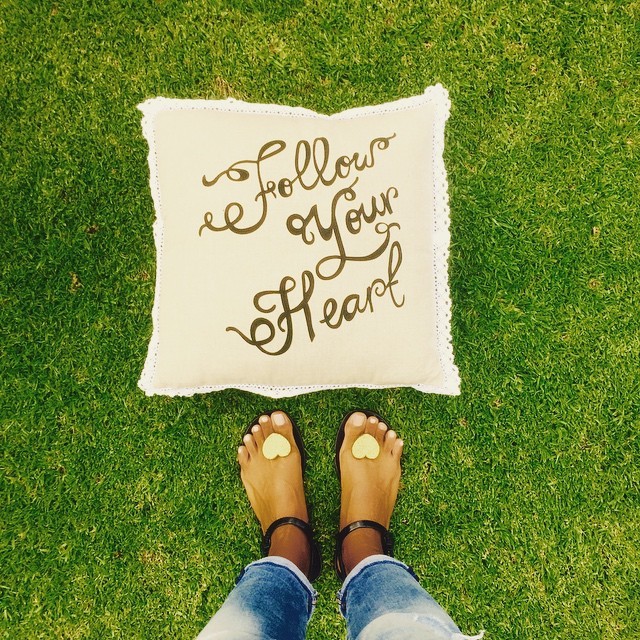 Follow
Your
Heart